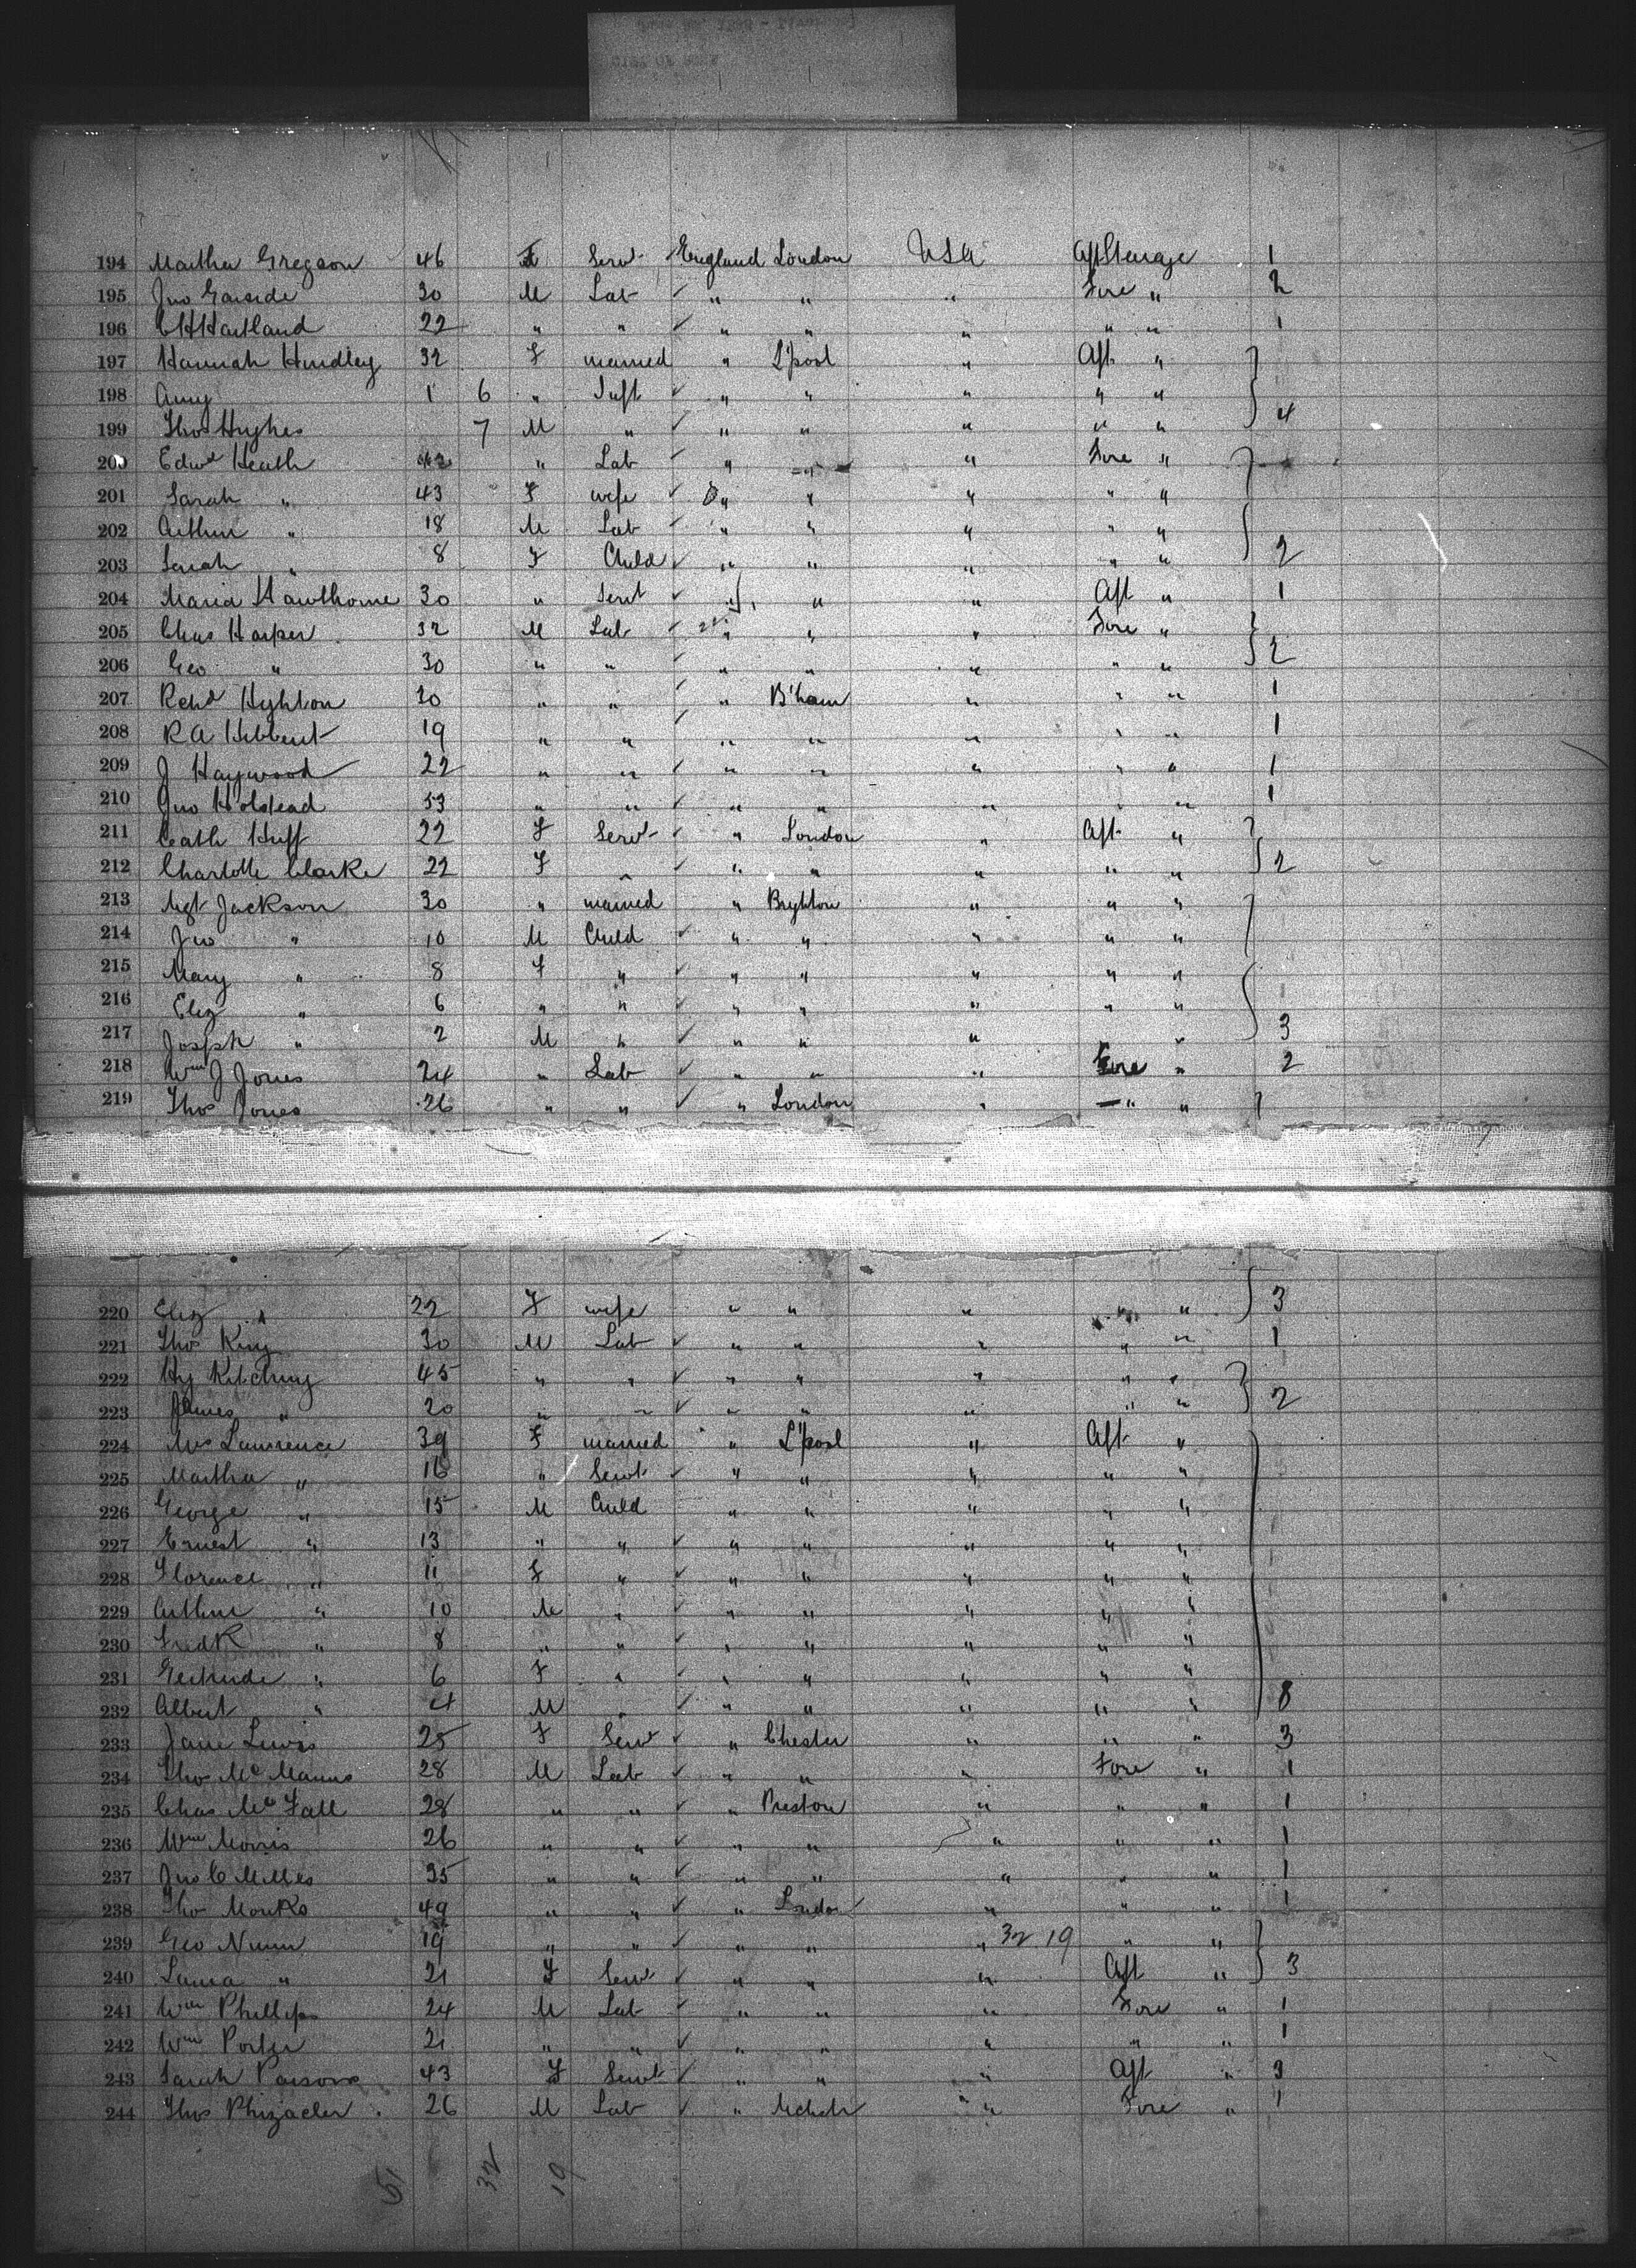 194 Martha Gregson 46 F Servt England London USA Aft Steerage 1
195 Jno Garside 30 M Lab ✓ " " " Fore " 2
196 C H Hartland 22 " " ✓ " " " " " 1
197 Hannah Hindley 32 F married " L'pool " Aft "
198 Amy 1 6 " Inft ✓ " " " " "
199 Thos Hughes 7 M " ✓ " " " " " 4
200 Edwd Heath 42 " Lab ✓ " " " Fore "
201 Sarah " 43 F wife ✓ " " " " "
202 Arthur " 18 M Lab ✓ " " " " "
203 Sarah " 8 F Child ✓ " " " " " 2
204 Maria Hawthorne 30 " Servt ✓ " " " Aft " 1
205 Chas Harper 32 M Lab ✓ " " " Fore "
206 Geo " 30 " " ✓ " " " " " 2
207 Richd Highton 30 " " ✓ " B'ham " " " 1
208 R A Hibbert 19 " " ✓ " " " " " 1
209 J Haywood 22 " " ✓ " " " " " 1
210 Jno Holstead 53 " " ✓ " " " " " 1
211 Cath Huff 22 F Servt " London " Aft "
212 Charlotte Clarke 22 F " ✓ " " " " " 2
213 Mgt Jackson 30 " married " Brighton " " "
214 Jno " 10 M Child ✓ " " " " "
215 Mary " 8 F " ✓ " " " " "
216 Eliz " 6 " " ✓ " " " " "
217 Joseph " 2 M " ✓ " " " " 3
218 Wm J Jones 24 " Lab ✓ " " " Fore " 2
219 Thos Jones 26 " " ✓ " London " " "
220 Eliz " 22 F wife " " " " " 3
221 Thos King 30 M Lab ✓ " " " " " 1
222 Hy Kitching 45 " " ✓ " " " " "
223 James " 20 " " ✓ " " " " " 2
224 Mrs Lawrence 39 F married " L'pool " Aft "
225 Martha " 16 " Servt ✓ " " " " "
226 George " 15 M Child " " " " "
227 Ernest " 13 " " ✓ " " " " "
228 Florence " 11 F " ✓ " " " " "
229 Arthur " 10 M " ✓ " " " " "
230 Fredk " 8 " " ✓ " " " " "
231 Gertrude " 6 F " ✓ " " " " "
232 Albert " 4 M " ✓ " " " " " 8
233 Jane Lewis 25 F Servt ✓ " Chester " " " 3
234 Thos McManus 28 M Lab ✓ " " " Fore " 1
235 Chas McFall 28 " " ✓ " Preston " " " 1
236 Wm Morris 26 " " ✓ " " " " " 1
237 Jno C Milles 35 " " ✓ " " " " " 1
238 Tho Monks 49 " " ✓ " London " " " 1
239 Geo Nunn 19 " " ✓ " " " 32 19 " "
240 Laura " 21 F Servt ✓ " " " Aft " 3
241 Wm Phillips 24 M Lab ✓ " " " Fore " 1
242 Wm Porter 21 " " ✓ " " " " " 1
243 Sarah Parsons 43 F Servt ✓ " " " Aft " 3
244 Thos Phizacler 26 M Lab ✓ " " " Fore " 1
51 32 19